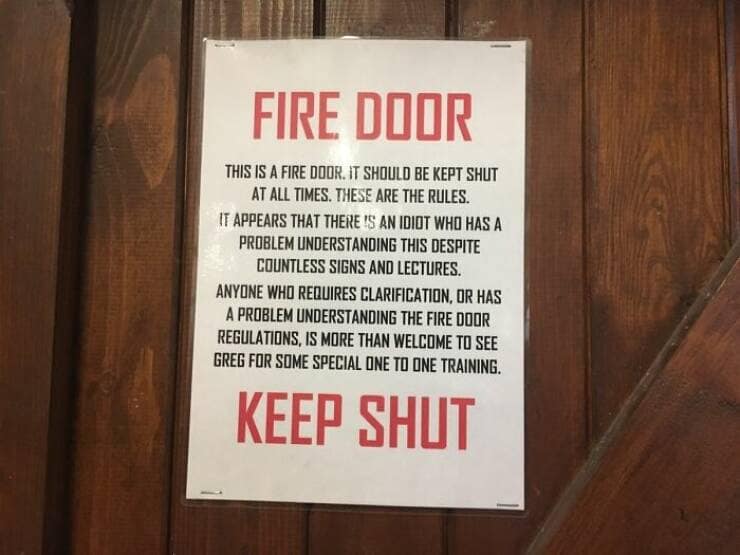 FIRE DOOR
THIS IS A FIRE DOOR. IT SHOULD BE KEPT SHUT
AT ALL TIMES. THESE ARE THE RULES.
IT APPEARS THAT THERE IS AN IDIOT WHO HAS A
PROBLEM UNDERSTANDING THIS DESPITE
COUNTLESS SIGNS AND LECTURES.
ANYONE WHO REQUIRES CLARIFICATION, OR HAS
A PROBLEM UNDERSTANDING THE FIRE DOOR
REGULATIONS, IS MORE THAN WELCOME TO SEE
GREG FOR SOME SPECIAL ONE TO ONE TRAINING.
KEEP SHUT